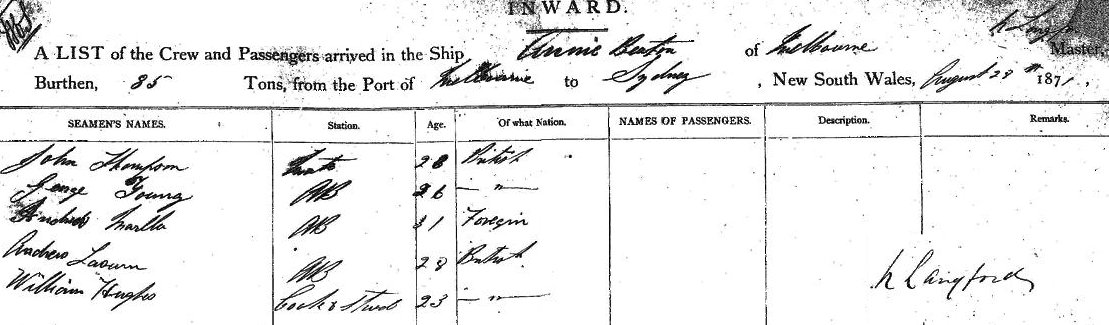 INWARD.
A LIST of the Crew and Passengers arrived in the Ship Annie Beaton of Melbourne Master,
Burthen, 85 Tons, from the Port of Melbourne to Sydney, New South Wales, August 28th 1871,
SEAMEN'S NAMES. Station. Age. Of what Nation. NAMES OF PASSENGERS. Description. Remarks.
John Thompson 28 British
George Young AB 26 — " —
AB 31 Foregin
Andrew AB 28 British
William Hughes Cook & Stwd 23 — " —
Langford